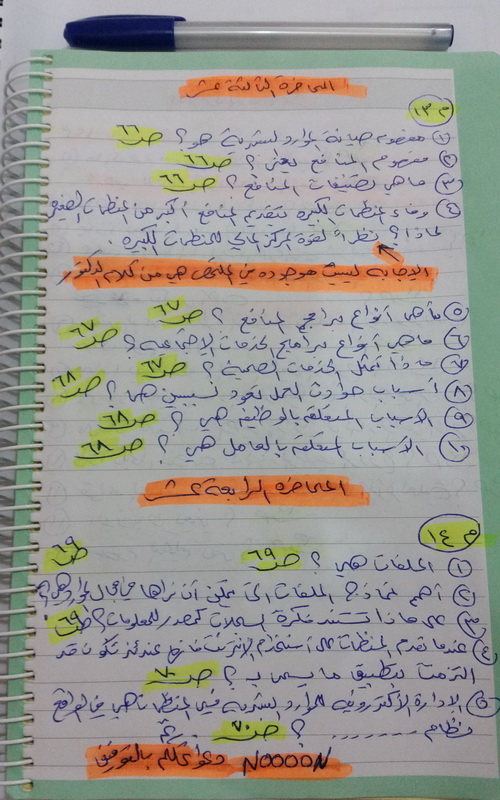 المحاضرة الثالثة عشر
م ١٣
١) مفهوم صيانة الموارد البشرية هو؟ ص٦٦
٢) مفهوم المنافع يعني؟ ص٦٦
٣) ماهي تصنيفات المنافع؟ ص٦٦
٤) وفاء المنظمات الكبيره بتقديم المنافع أكبر من المنظمات الصغير
لماذا؟ نظراً لقوة المركز المالي للمنظمات الكبيره.
الإجابه ليست موجوده في الملخص هي من كلام الدكتور
٥) ماهي أنواع برامج المنافع؟ ص٦٧
٦) ماهي أنواع برامج الخدمات الإجتماعية؟ ص٦٧
٧) ماذا تمثل الخدمات الصحية؟ ص٦٧
٨) أسباب حوادث العمل تعود لسببين هي؟ ص٦٨
٩) الأسباب المتعلقة بالوظيفه هي؟ ص٦٨
١٠) الأسباب المتعلقة بالعامل هي؟ ص٦٨
المحاضرة الرابعة عشر
م ١٤
١) الملفات هي؟ ص٦٩
٢) أهم نماذج الملفات التي يمكن أن نراها في مجال الموارد هي؟ ص٦٩
٣) على ماذا تستند فكرة السجلات كمصدر للمعلومات؟ ص٦٩
٤) عندما تقدم المنظمات على أستخدام الإنترنت فإنها عندئذ تكون قد
التزمت بتطبيق ما يسمى بـ؟ ص٧٠
٥) الإدارة الألكترونية للموارد البشرية في المنظمات ماهي في الواقع
نظام ........ ؟ ص٧٠
NOOOON دعواتكم بالتوفيق